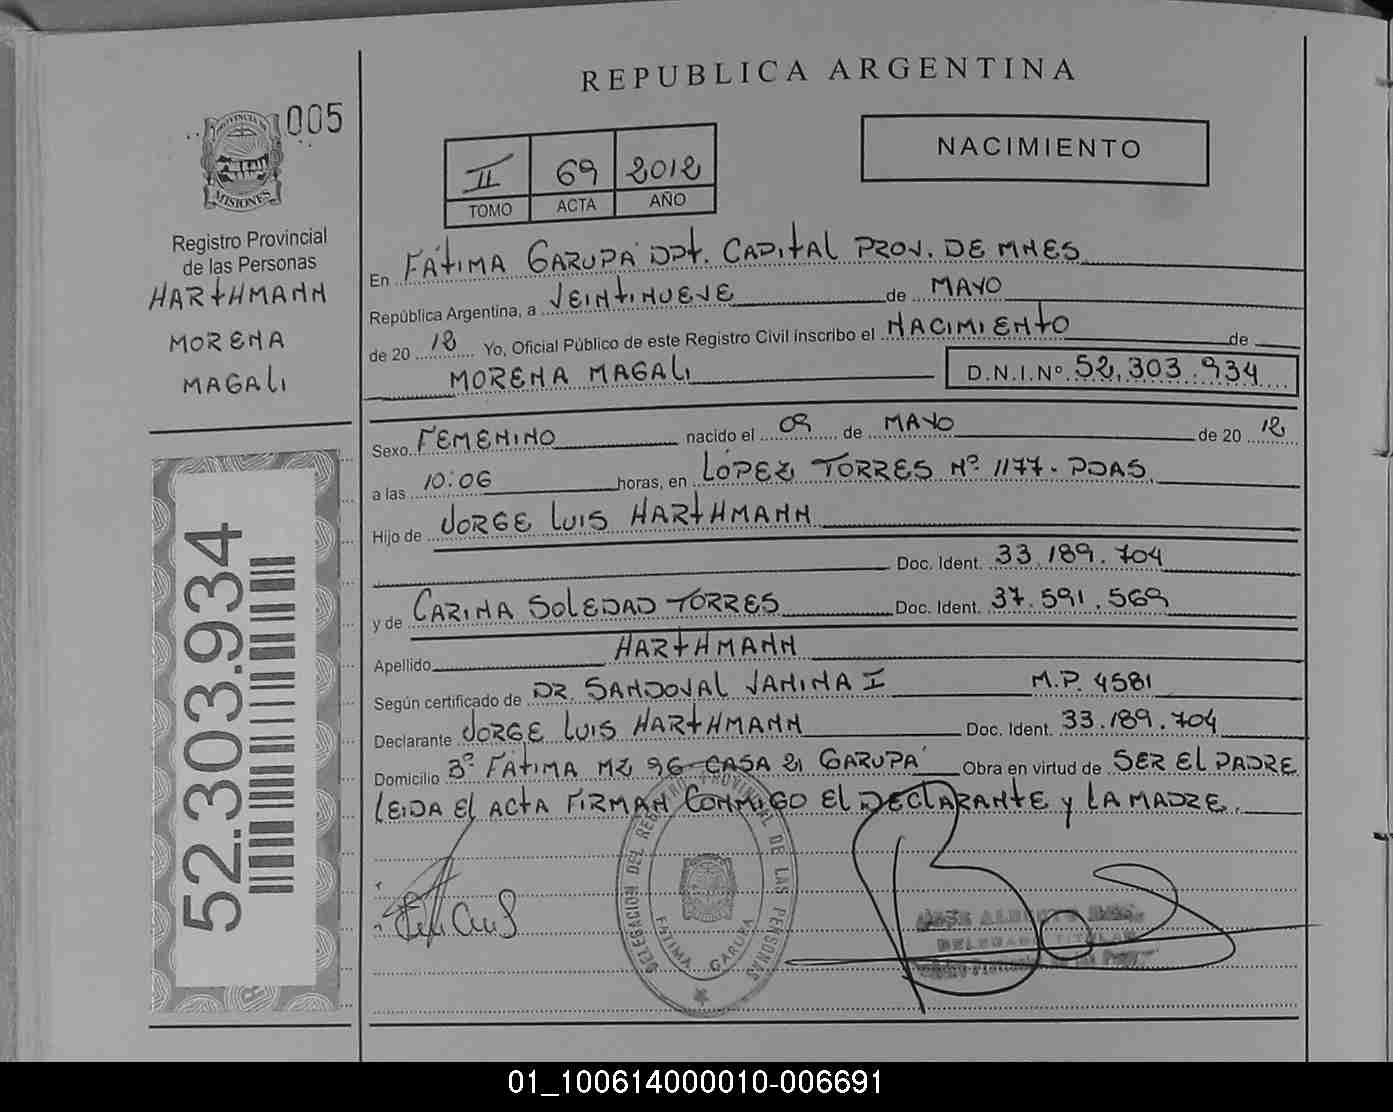 REPUBLICA ARGENTINA
005
PROVINCIA DE
MISIONES
Registro Provincial
de las Personas
HARTHMANN
MORENA
MAGALI
52.303.934
II 69 2012
TOMO ACTA AÑO
NACIMIENTO
En FÁTIMA GARUPÁ DPT. CAPITAL PROV. DE MNES
República Argentina, a VEINTINUEVE de MAYO
de 20 12 Yo, Oficial Público de este Registro Civil inscribo el NACIMIENTO de
MORENA MAGALI D.N.I.Nº 52.303.934
Sexo FEMENINO nacido el 09 de MAYO de 20 12
a las 10:06 horas, en LÓPEZ TORRES Nº 1177. PDAS.
Hijo de JORGE LUIS HARTHMANN
Doc. Ident. 33.189.704
y de CARINA SOLEDAD TORRES Doc. Ident. 37.591.569
Apellido HARTHMANN
Según certificado de DR. SANDOVAL VANINA I M.P. 4581
Declarante JORGE LUIS HARTHMANN Doc. Ident. 33.189.704
Domicilio Bº FÁTIMA MZ 96 CASA 21 GARUPÁ Obra en virtud de SER EL PADRE
LEIDA EL ACTA FIRMAN CONMIGO EL DECLARANTE y LA MADRE.
DELEGACION DEL REGISTRO PROVINCIAL DE LAS PERSONAS
FATIMA GARUPA
01_100614000010-006691